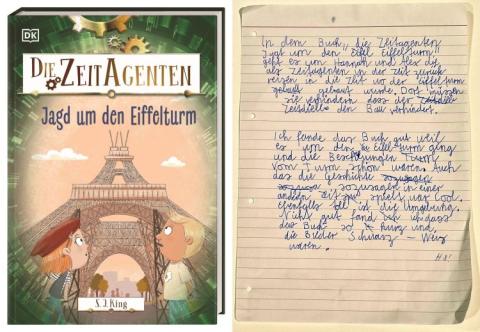 DK
DIE ZEITAGENTEN
Jagd um den Eiffelturm
S. J. King
In dem Buch „die Zeitagenten
Jagd um den Eiffelturm"
geht es um Hannah und Alex die
als Zeitagenten in der Zeit zurück
reizen in die Zeit vor der eiffelturm
gebaut wurde. Dort müssen
sie verhindern dass der
Zeitdieb den Bau verhindert.
Ich fande das Buch gut weil
es um den Eiffelturm ging
und die Beschreibungen
vom Turm schön waren. Auch
das die Geschichte
sozusagen in einer
andern Zeit spielt war cool.
ebenfalls toll ist die Umgebung.
Nicht gut fand ich dass
das Buch so kurz und
die Bilder Schwarz - Weiß
waren.